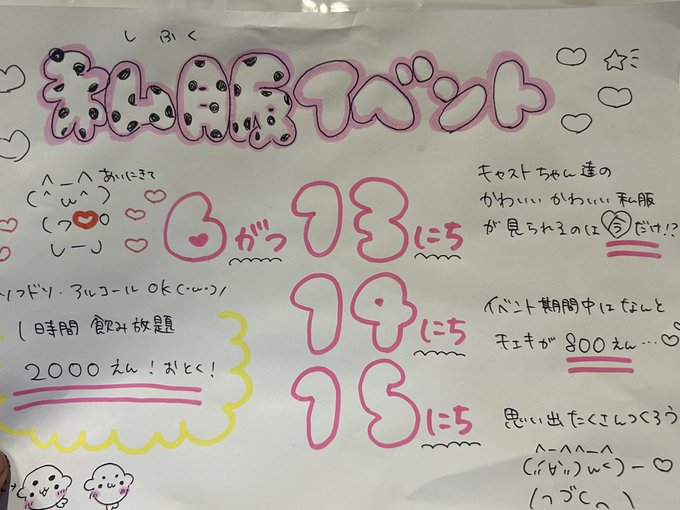 しふく
私服イベント
あいにきて
^_^
(^ω^)
(っ♡o
し－J
6がつ13にち
14にち
15にち
キャストちゃん達の
かわいい かわいい 私服
が見られるのは今だけ!?
ソフドリ・アルコールOK(・ω・)ノ
1時間 飲み放題
2000えん!おとく!
イベント期間中はなんと
チェキが800えん…♡
思い出たくさんつくろう